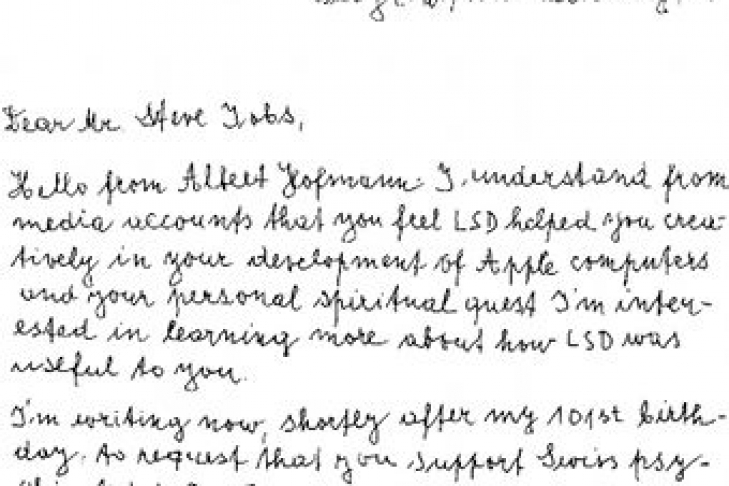 Dear Mr. Steve Jobs,
Hello from Albert Hofmann. I understand from
media accounts that you feel LSD helped you crea-
tively in your development of Apple computers
and your personal spiritual quest. I'm inter-
ested in learning more about how LSD was
useful to you.
I'm writing now, shortly after my 101st birth-
day, to request that you support Swiss psy-